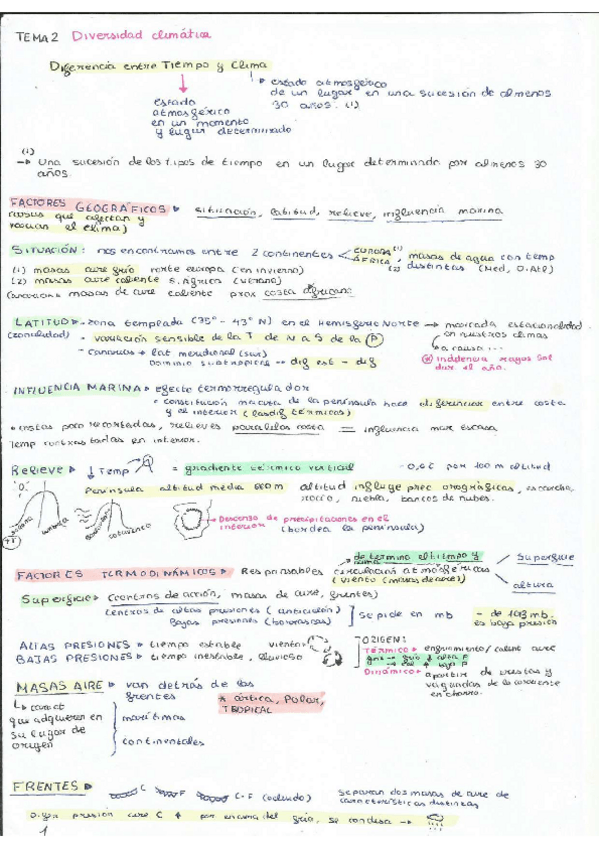 TEMA 2 Diversidad climática
Diferencia entre Tiempo y Clima
estado atmosférico
de un lugar en una sucesión de al menos
30 años. (1)
estado
atmosférico
en un momento
y lugar determinado
(1)
→ Una sucesión de los tipos de tiempo en un lugar determinado por al menos 30
años.
FACTORES GEOGRÁFICOS situación, latitud, relieve, influencia marina
(cosas que afectan y
varian el clima)
SITUACIÓN: nos encontramos entre 2 continentes EUROPA (1) ÁFRICA (2), masas de agua con temp
distintas (Med, O. Atl)
(1) masas aire frío norte europa (en invierno)
(2) masas aire caliente S. Africa (verano)
masas de aire caliente prox costa africana
LATITUD zona templada (35° - 43° N) en el Hemisferio Norte → marcada estacionalidad
en nuestros climas
(zonalidad) - variación sensible de la T de N a S de la P
a causa...
- Canarias + lat meridional (sur)
Dominio subtropical dif est - dif
incidencia rayos sol
dur. el año.
INFLUENCIA MARINA efecto termorregulador
- constitución maciza de la península hace diferenciar entre costa
y el interior (las dif térmicas)
costas poco recortadas, relieves paralelos costa = influencia mar escasa
Temp contrastadas en interior.
Relieve ↓ Temp = gradiente térmico vertical - 0,6E por 100 m altitud
Península altitud media 660 m altitud influye prec orográficas, escarcha,
rocío, niebla, bancos de nubes.
solana
umbría
barlovento
sotavento
Descenso de precipitaciones en el
interior (bordea la península)
FACTORES TERMODINÁMICOS Responsables circulación atmosféricas
determina el tiempo y
clima
(viento (masas de aire)
Superficie
altura
Superficie (centros de acción, masas de aire, frentes)
Centros de altas presiones (anticiclón)
Bajas presiones (borrascas)
Se mide en mb
- de 1013 mb.
es baja presión
ALTAS PRESIONES tiempo estable viento
BAJAS PRESIONES tiempo inestable, lluvioso
ORIGEN:
TÉRMICO enfriamiento/calent aire
frío alta P
cal baja P
DINÁMICO a partir de crestas y
vaguadas de la corriente
en chorro.
MASAS AIRE van detrás de los
frentes
* ártica, POLAR,
TROPICAL
caract
que adquieren en
su lugar de
origen
marítimas
continentales
FRENTES C F C-F (ocluido) separan dos masas de aire de
características distintas
presión aire C por encima del frío, se condensa →
1